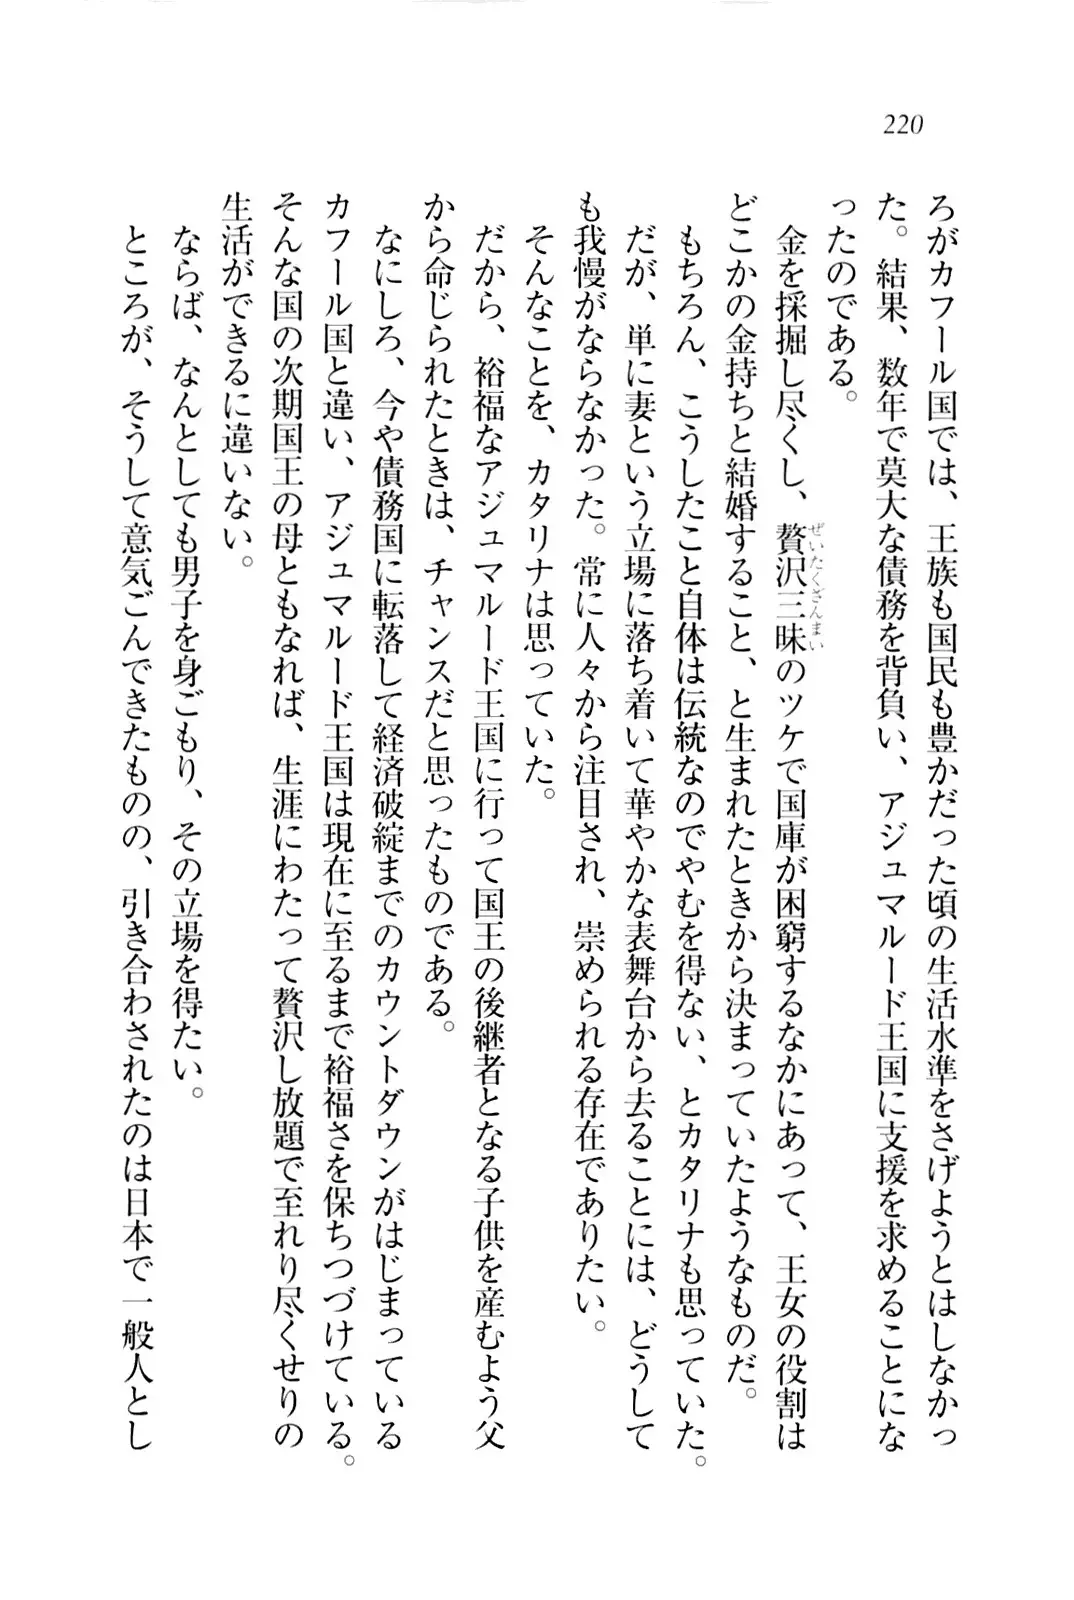 220
ろがカフール国では、王族も国民も豊かだった頃の生活水準をさげようとはしなかっ
た。結果、数年で莫大な債務を背負い、アジュマルード王国に支援を求めることにな
ったのである。
金を採掘し尽くし、贅沢三昧のツケで国庫が困窮するなかにあって、王女の役割は
ぜいたくざんまい
どこかの金持ちと結婚すること、と生まれたときから決まっていたようなものだ。
もちろん、こうしたこと自体は伝統なのでやむを得ない、とカタリナも思っていた。
だが、単に妻という立場に落ち着いて華やかな表舞台から去ることには、どうして
も我慢がならなかった。常に人々から注目され、崇められる存在でありたい。
そんなことを、カタリナは思っていた。
だから、裕福なアジュマルード王国に行って国王の後継者となる子供を産むよう父
から命じられたときは、チャンスだと思ったものである。
なにしろ、今や債務国に転落して経済破綻までのカウントダウンがはじまっている
カフール国と違い、アジュマルード王国は現在に至るまで裕福さを保ちつづけている。
そんな国の次期国王の母ともなれば、生涯にわたって贅沢し放題で至れり尽くせりの
生活ができるに違いない。
ならば、なんとしても男子を身ごもり、その立場を得たい。
ところが、そうして意気ごんできたものの、引き合わされたのは日本で一般人とし